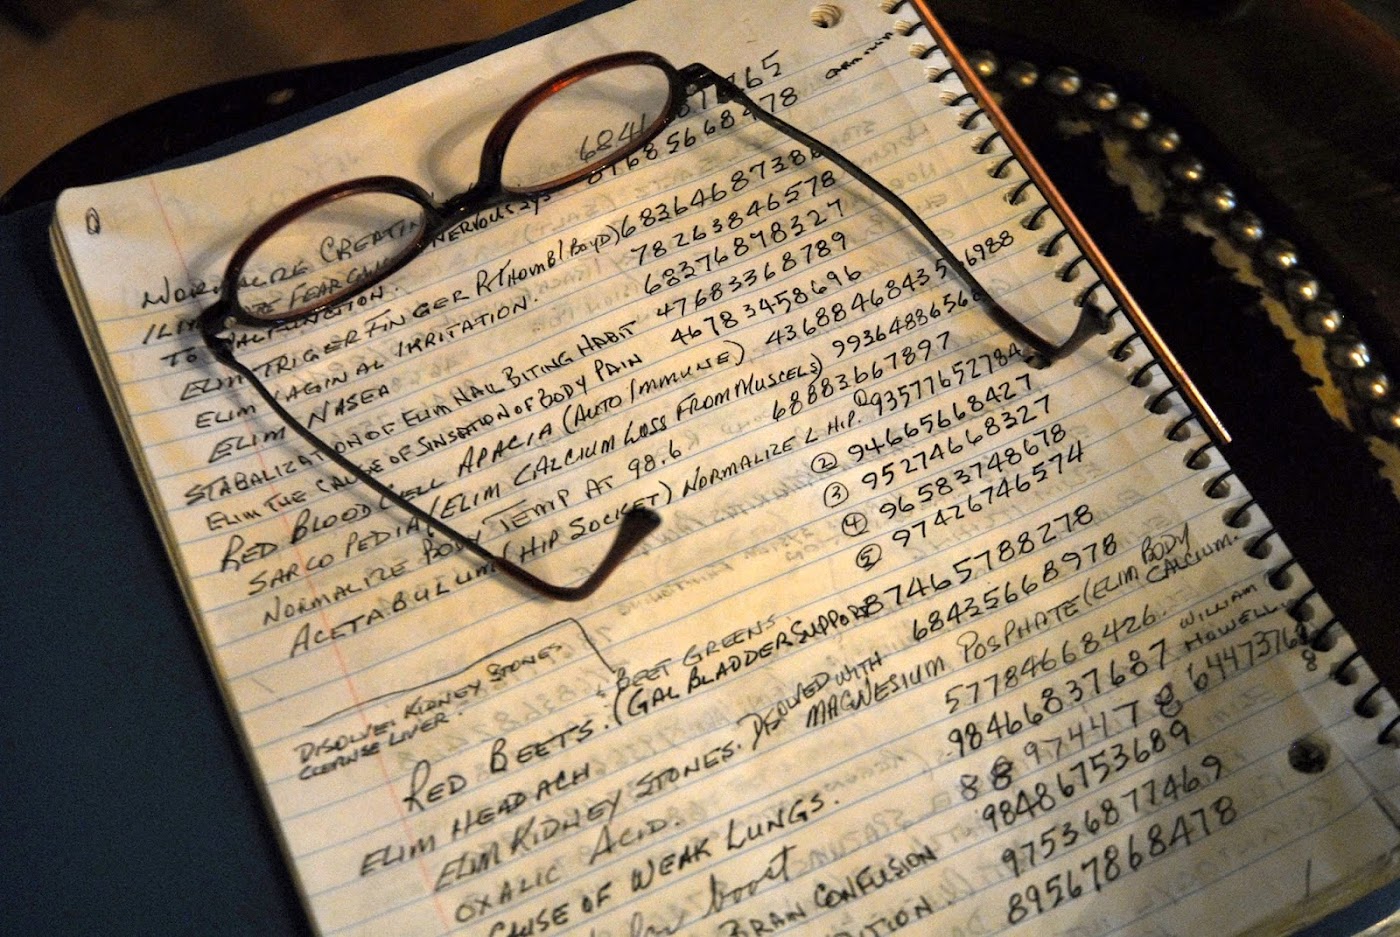 NORMALIZE CREATIN 87765
FEAR NERVOUS SYS 87685668478
TO MALFUNCTION.
ELIM TRIGER FINGER R THOMB (BOYD) 68364687386
ELIM VAGINAL IRRITATION. 78263846578
ELIM NASEA 68376898327
STABALIZATION OF ELIM NAIL BITING HABIT 47683368789
ELIM THE CAUSE OF SINSATION OF BODY PAIN 46783458696
RED BLOOD CELL APACIA (AUTO IMMUNE)
SARCO PEDIA (ELIM CALCIUM LOSS FROM MUSCELS)
NORMALIZE BODY TEMP AT 98.6 68883667897
ACETABULUM (HIP SOCKET) NORMALIZE L HIP. ① 93577652784
② 94665668427
③ 95274668327
④ 96583748678
⑤ 97426746574
DISOLVE KIDNEY STONES
CLEANSE LIVER.
BEET GREENS
RED BEETS. (GAL BLADDER SUPPORT 87465788278
ELIM HEADACH 68435668978
ELIM KIDNEY STONES. DISOLVED WITH MAGNESIUM POSPHATE (ELIM BODY CALCIUM.
OXALIC ACID. 57784668426
CAUSE OF WEAK LUNGS. 98466837687 WILLIAM HOWELL
boost 88974478
BRAIN CONFUSION 98486753689
97536877469
89567868478